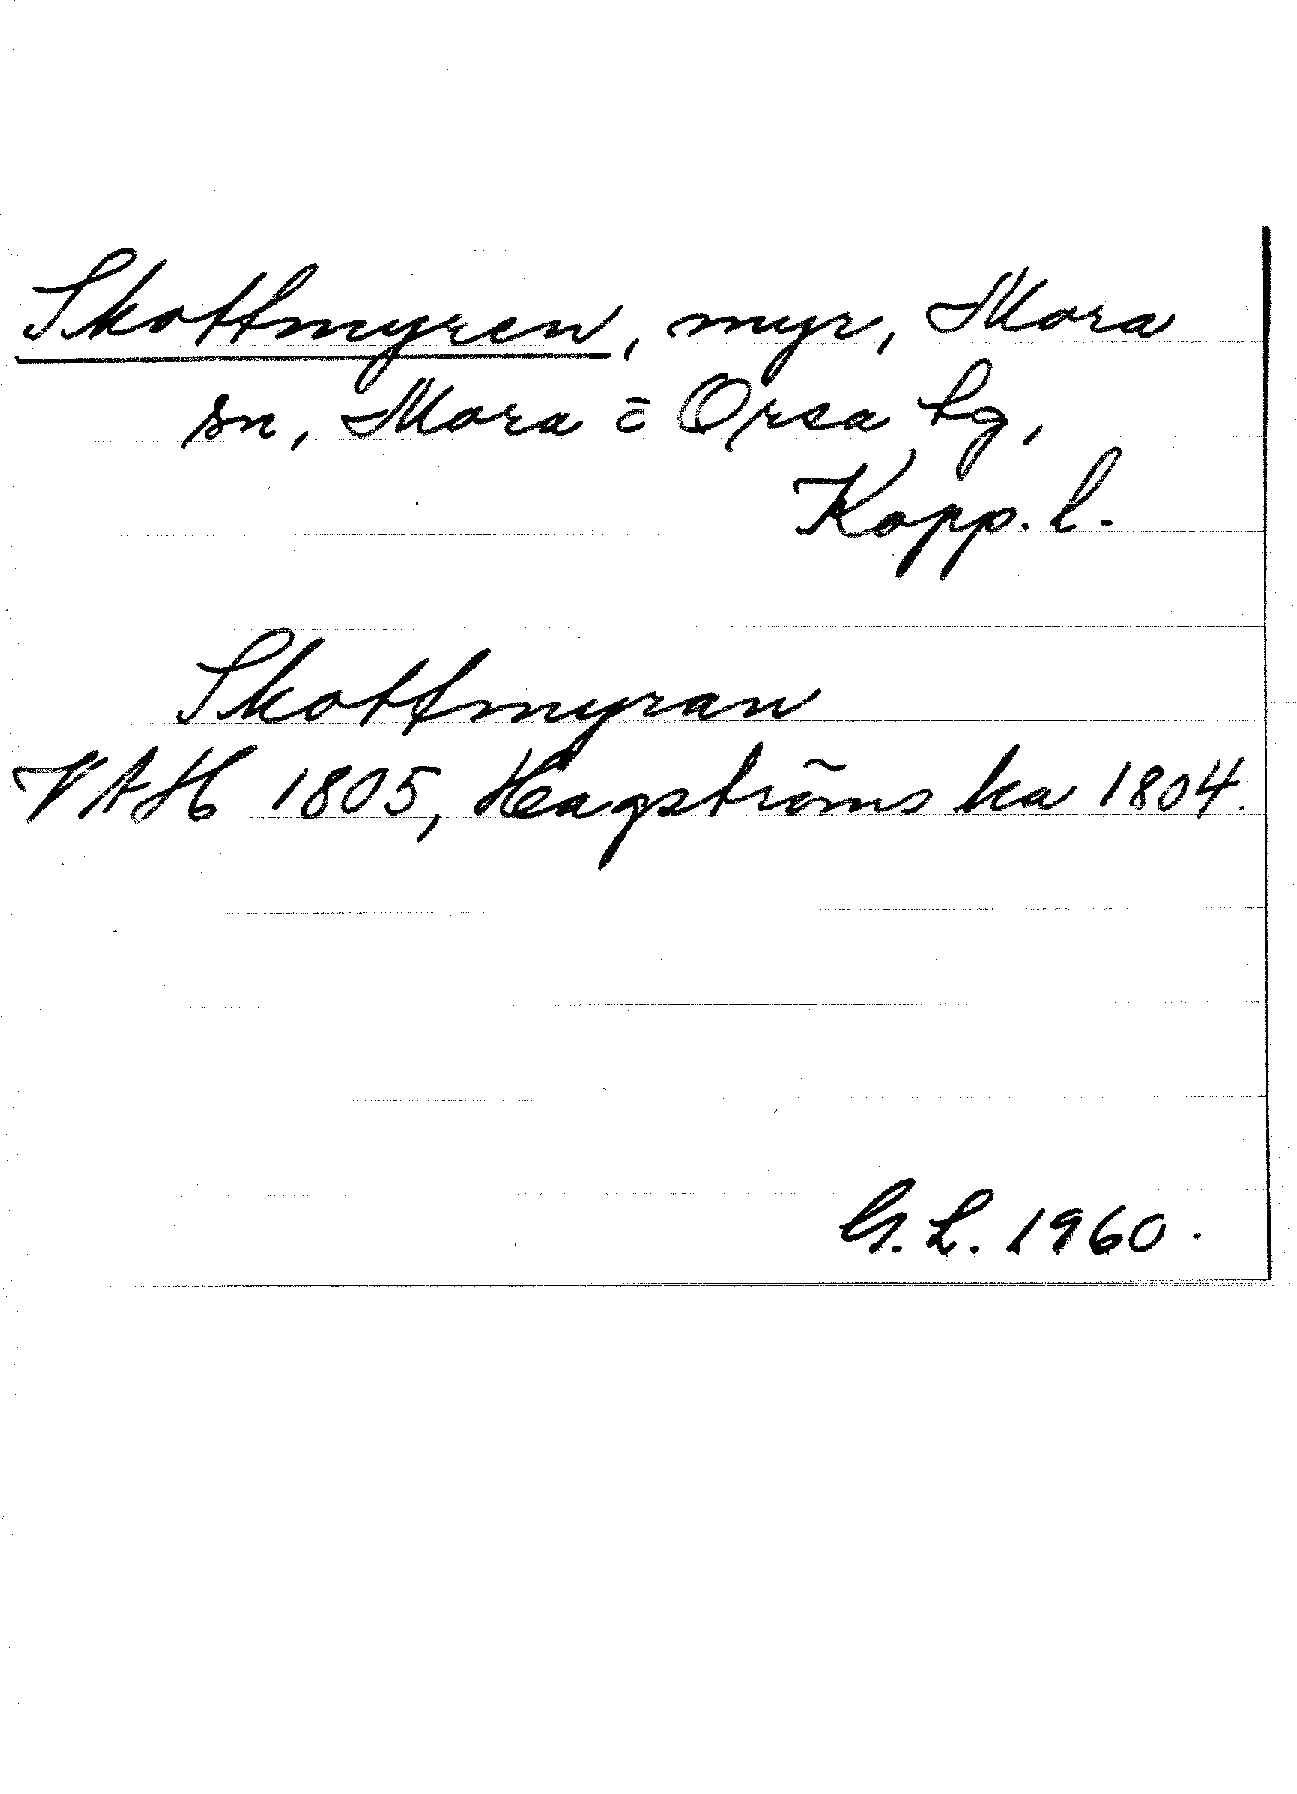 Skottmyren, myr, Mora
sn, Mora o Orsa tg,
Kopp. l.
Skottmyran
VAH 1805, Hagströms ka 1804.
G. L. 1960.